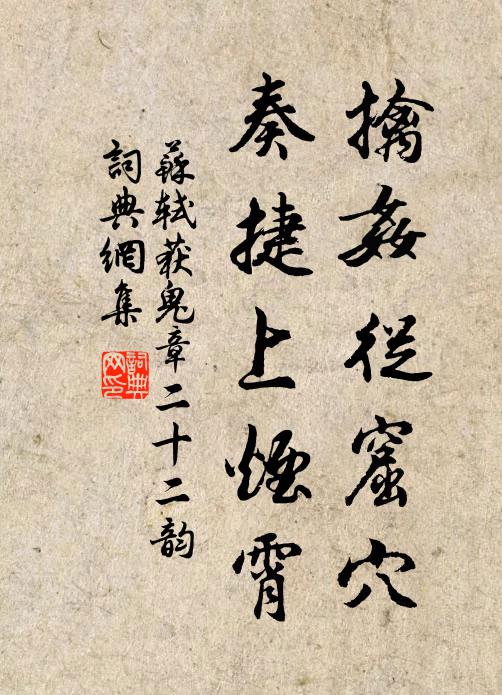 擒姦從窟穴
奏捷上煙霄
蘇軾获鬼章二十二韵
詞典網集
詞典網印